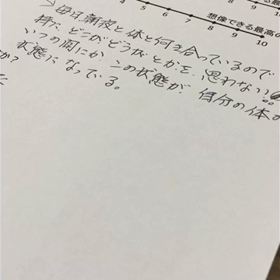 想像できる最高の
4 5 6 7 8 9 10
→毎日朝夜と体と向き合っているので
特に、どこがどうがとかを、思わない。
いつの間にか この状態が、自分の体の
状態になっている。
か?
た